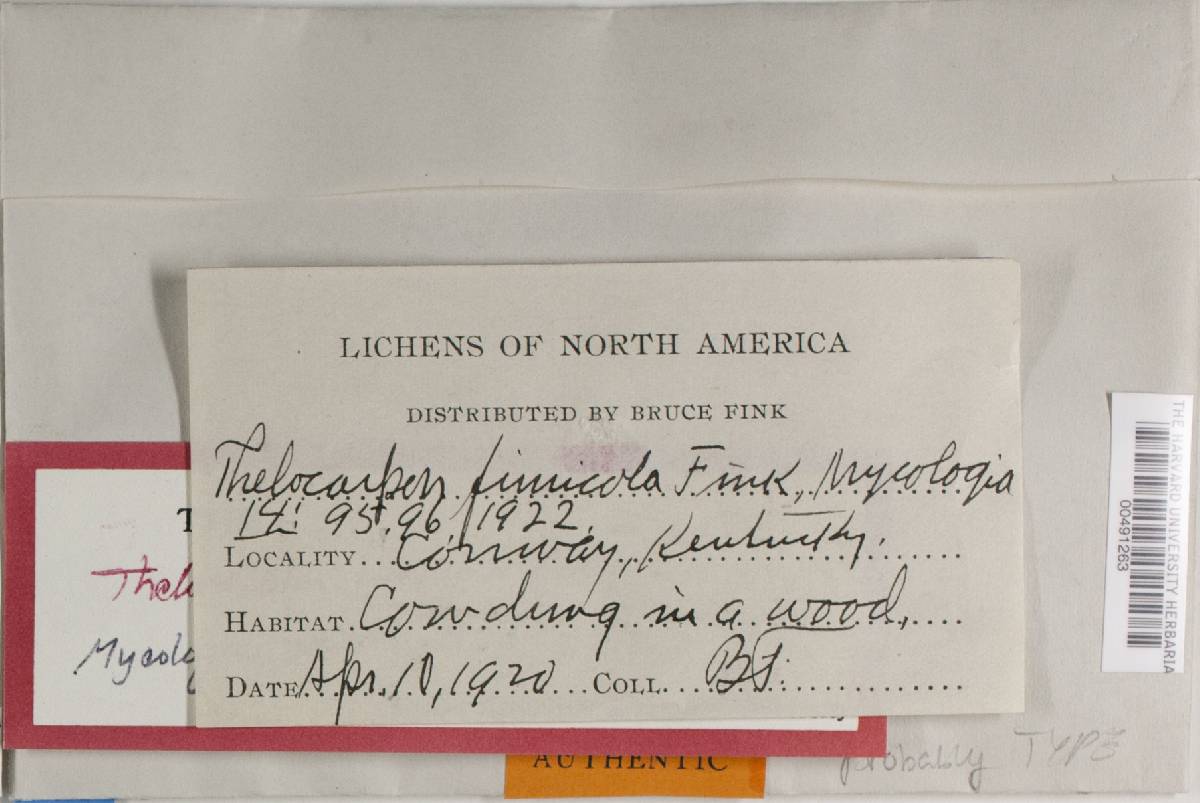 LICHENS OF NORTH AMERICA
DISTRIBUTED BY BRUCE FINK
Thelocarpon fimicola Fink, Mycologia
14: 95, 96, 1922.
LOCALITY...Conway, Kentucky.
HABITAT.Cowdung in a wood,
DATE Apr. 10, 1920 ...COLL....BF.
T
Thel
Mycolo
AUTHENTIC
probably TYPE
THE HARVARD UNIVERSITY HERBARIA
00491263